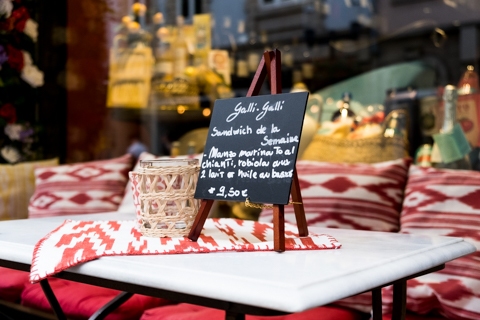 Galli.Galli
Sandwich de la
Semaine
- Manzo marinato al
chianti, robiola aux
2 lait et huile au basilic
€ 9,50€